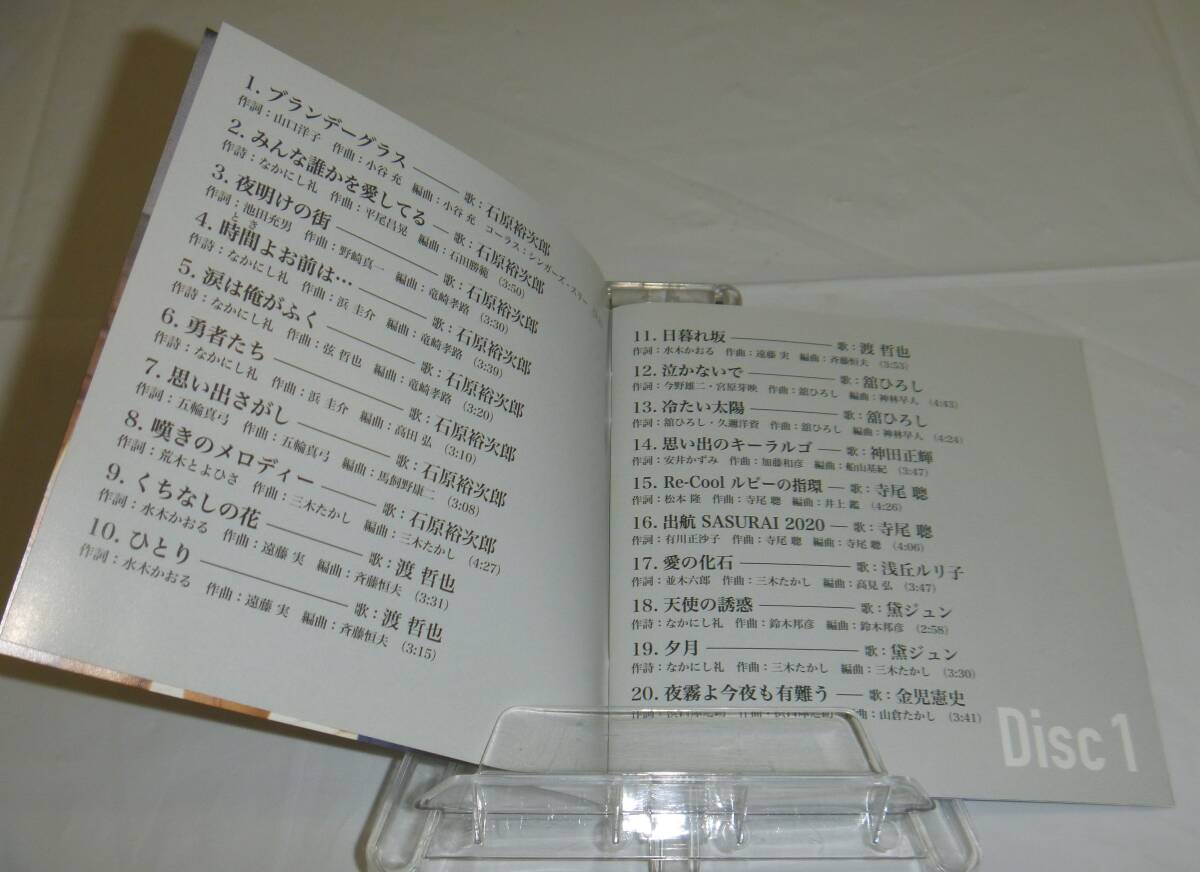 1. ブランデーグラス ――― 歌：石原裕次郎
作詞：山口洋子　作曲：小谷 充　編曲：小谷 充　コーラス：シンガーズ・スリー
2. みんな誰かを愛してる ― 歌：石原裕次郎
作詩：なかにし礼　作曲：平尾昌晃　編曲：石田勝範　(3:50)
3. 夜明けの街 ――― 歌：石原裕次郎
作詞：池田充男　作曲：野崎真一　編曲：竜崎孝路　(3:30)
とき
4. 時間よお前は… ――― 歌：石原裕次郎
作詩：なかにし礼　作曲：浜 圭介　編曲：竜崎孝路　(3:39)
5. 涙は俺がふく ――― 歌：石原裕次郎
作詩：なかにし礼　作曲：弦 哲也　編曲：竜崎孝路　(3:20)
6. 勇者たち ――― 歌：石原裕次郎
作詩：なかにし礼　作曲：浜 圭介　編曲：高田 弘　(3:10)
7. 思い出さがし ――― 歌：石原裕次郎
作詞：五輪真弓　作曲：五輪真弓　編曲：馬飼野康二　(3:08)
8. 嘆きのメロディー ― 歌：石原裕次郎
作詞：荒木とよひさ　作曲：三木たかし　編曲：三木たかし　(4:27)
9. くちなしの花 ――― 歌：渡 哲也
作詞：水木かおる　作曲：遠藤 実　編曲：斉藤恒夫　(3:31)
10. ひとり ――― 歌：渡 哲也
作詞：水木かおる　作曲：遠藤 実　編曲：斉藤恒夫　(3:15)
11. 日暮れ坂 ――― 歌：渡 哲也
作詞：水木かおる　作曲：遠藤 実　編曲：斉藤恒夫　(3:53)
12. 泣かないで ――― 歌：舘ひろし
作詞：今野雄二・宮原芽映　作曲：舘ひろし　編曲：神林早人　(4:43)
13. 冷たい太陽 ――― 歌：舘ひろし
作詞：舘ひろし・久邇洋資　作曲：舘ひろし　編曲：神林早人　(4:24)
14. 思い出のキーラルゴ ― 歌：神田正輝
作詞：安井かずみ　作曲：加藤和彦　編曲：船山基紀　(3:47)
15. Re-Cool ルビーの指環 ― 歌：寺尾 聰
作詞：松本 隆　作曲：寺尾 聰　編曲：井上 鑑　(4:26)
16. 出航 SASURAI 2020 ― 歌：寺尾 聰
作詞：有川正沙子　作曲：寺尾 聰　編曲：寺尾 聰　(4:06)
17. 愛の化石 ――― 歌：浅丘ルリ子
作詞：並木六郎　作曲：三木たかし　編曲：高見 弘　(3:47)
18. 天使の誘惑 ――― 歌：黛ジュン
作詩：なかにし礼　作曲：鈴木邦彦　編曲：鈴木邦彦　(2:58)
19. 夕月 ――― 歌：黛ジュン
作詩：なかにし礼　作曲：三木たかし　編曲：三木たかし　(3:30)
20. 夜霧よ今夜も有難う ― 歌：金児憲史
編曲：山倉たかし　(3:41)
Disc 1